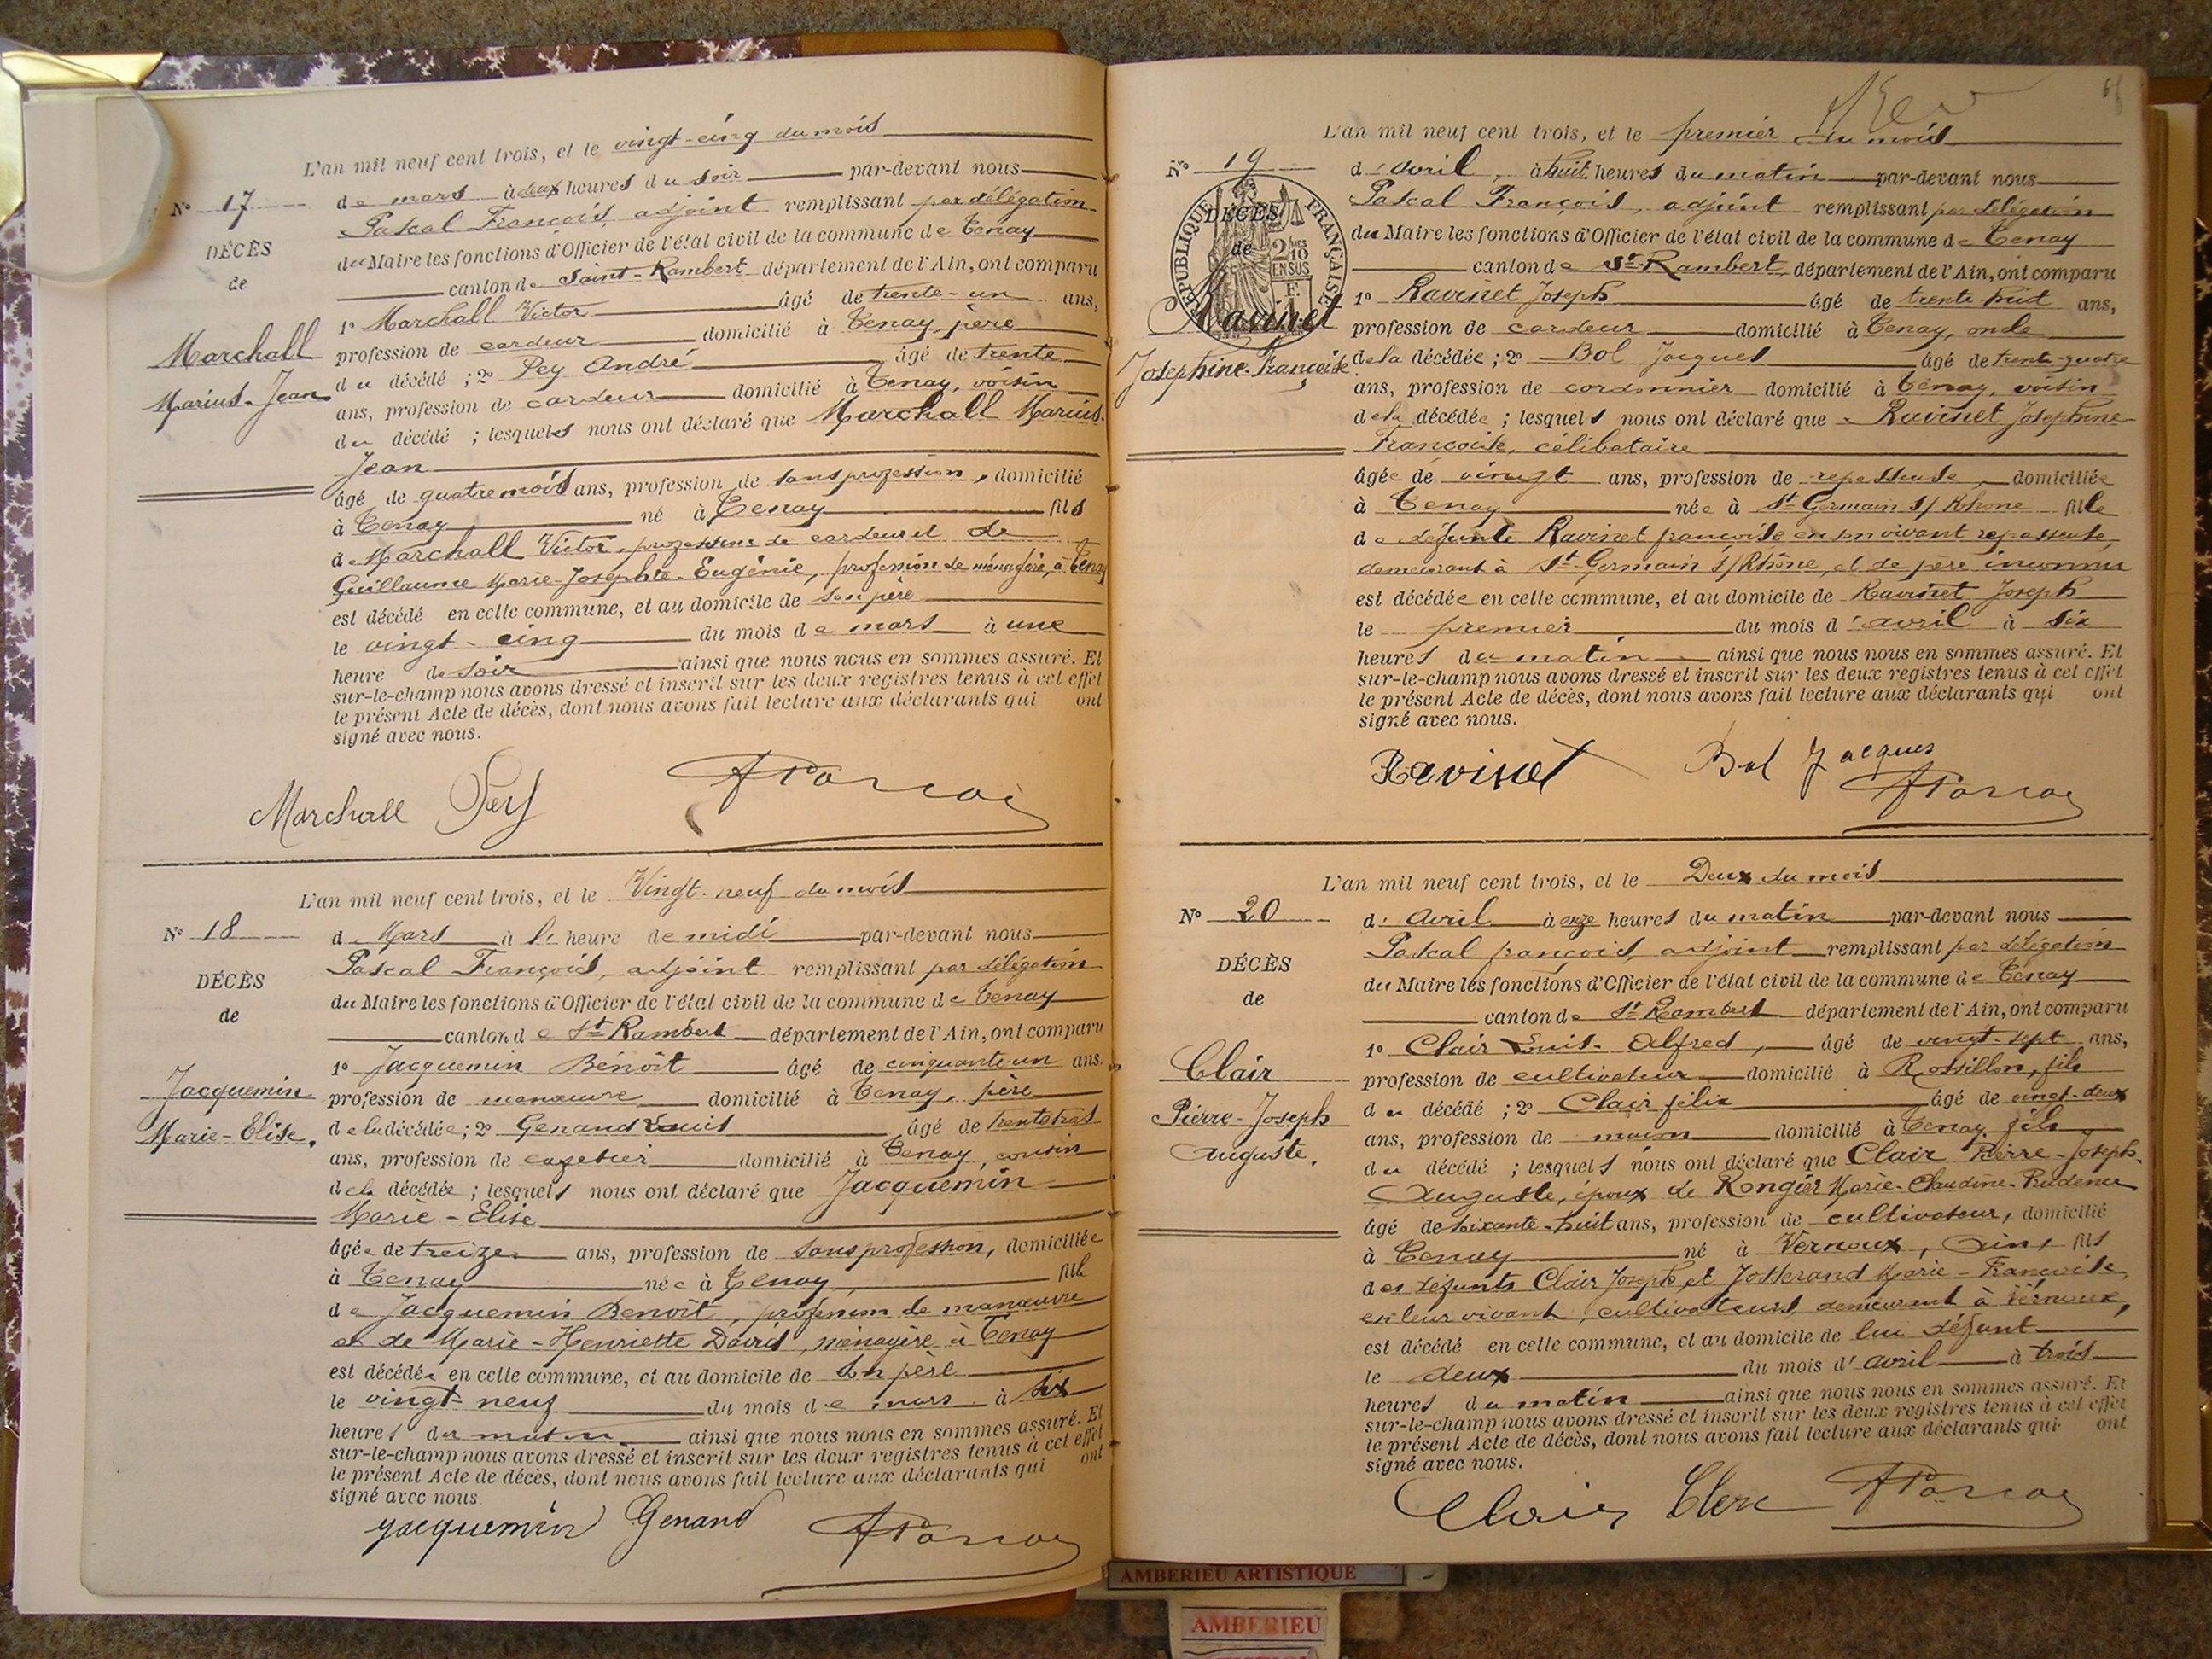 L'an mil neuf cent trois, et le vingt-cinq du mois
N° 17
de mars à deux heures du soir par-devant nous
Pascal François, adjoint remplissant par délégation
DÉCÈS
du Maire les fonctions d'Officier de l'état civil de la commune de Tenay
de
canton de Saint-Rambert département de l'Ain, ont comparu
1° Marchall Victor âgé de trente-un ans,
Marchall
profession de cardeur domicilié à Tenay, père
Marius-Jean
du décédé ; 2° Pey André âgé de trente
ans, profession de cardeur domicilié à Tenay, voisin
du décédé ; lesquels nous ont déclaré que Marchall Marius-
Jean
âgé de quatre mois ans, profession de sans profession, domicilié
à Tenay né à Tenay fils
de Marchall Victor, profession de cardeur et de
Guillaume Marie-Josephte-Eugénie, profession de ménagère, à Tenay
est décédé en cette commune, et au domicile de son père
le vingt-cinq du mois de mars à une
heure de soir ainsi que nous nous en sommes assuré. Et
sur-le-champ nous avons dressé et inscrit sur les deux registres tenus à cet effet
le présent Acte de décès, dont nous avons fait lecture aux déclarants qui ont
signé avec nous.
Marchall Pey FPascal
L'an mil neuf cent trois, et le Vingt-neuf du mois
N° 18
de Mars à l' heure de midi par-devant nous
Pascal François, adjoint remplissant par délégation
DÉCÈS
du Maire les fonctions d'Officier de l'état civil de la commune de Tenay
de
canton de St-Rambert département de l'Ain, ont comparu
1° Jacquemin Bénoît âgé de cinquante un ans.
Jacquemin
profession de manœuvre domicilié à Tenay, père
Marie-Elise.
de la décédée ; 2° Genand Louis âgé de trente trois
ans, profession de cafetier domicilié à Tenay, cousin
de la décédée ; lesquels nous ont déclaré que Jacquemin
Marie-Elise
âgée de treize ans, profession de sans profession, domiciliée
à Tenay née à Tenay, fille
de Jacquemin Benoît, profession de manœuvre
et de Marie-Henriette David, ménagère à Tenay
est décédée en cette commune, et au domicile de son père
le vingt-neuf du mois de mars à six
heures du matin ainsi que nous nous en sommes assuré. Et
sur-le-champ nous avons dressé et inscrit sur les deux registres tenus à cet effet
le présent Acte de décès, dont nous avons fait lecture aux déclarants qui ont
signé avec nous
Jacquemin Genand FPascal
L'an mil neuf cent trois, et le premier du mois
N° 19
d'Avril, à huit heures du matin par-devant nous
Pascal François, adjoint remplissant par délégation
RÉPUBLIQUE FRANÇAISE
DÉCÈS
du Maire les fonctions d'Officier de l'état civil de la commune de Tenay
de
2/10 EN SUS
canton de St-Rambert, département de l'Ain, ont comparu
1° Ravinet Joseph âgé de trente huit ans,
Ravinet
profession de cardeur domicilié à Tenay, oncle
Joséphine-Françoise
de la décédée ; 2° Bol Jacques âgé de trente-quatre
ans, profession de cordonnier domicilié à Tenay, voisin
de la décédée ; lesquels nous ont déclaré que Ravinet Joséphine
Françoise, célibataire
âgée de vingt ans, profession de repasseuse, domiciliée
à Tenay née à St-Germain s/ Rhône fille
de défunte Ravinet françoise en son vivant repasseuse,
demeurant à St-Germain s/Rhône, et de père inconnu
est décédée en cette commune, et au domicile de Ravinet Joseph
le premier du mois d'avril à six
heures du matin ainsi que nous nous en sommes assuré. Et
sur-le-champ nous avons dressé et inscrit sur les deux registres tenus à cet effet
le présent Acte de décès, dont nous avons fait lecture aux déclarants qui ont
signé avec nous.
Ravinet Bol Jacques FPascal
L'an mil neuf cent trois, et le Deux du mois
N° 20
d'Avril à onze heures du matin par-devant nous
Pascal françois, adjoint remplissant par délégation
DÉCÈS
du Maire les fonctions d'Officier de l'état civil de la commune de Tenay
de
canton de St-Rambert département de l'Ain, ont comparu
1° Clair Louis-Alfred, âgé de vingt-sept ans,
Clair
profession de cultivateur domicilié à Rossillon, fils
Pierre-Joseph
du décédé ; 2° Clair félix âgé de vingt-deux
Auguste.
ans, profession de maçon domicilié à Tenay, fils
du décédé ; lesquels nous ont déclaré que Clair Pierre-Joseph-
Auguste, époux de Rongier Marie-Claudine-Prudence
âgé de soixante-huit ans, profession de cultivateur, domicilié
à Tenay né à Vernoux, Ain, fils
des défunts Clair Joseph et Josserand Marie-Françoise
en leur vivant, cultivateurs, demeurant à Vernoux,
est décédé en cette commune, et au domicile de lui défunt
le deux du mois d'avril à trois
heures du matin ainsi que nous nous en sommes assuré. Et
sur-le-champ nous avons dressé et inscrit sur les deux registres tenus à cet effet
le présent Acte de décès, dont nous avons fait lecture aux déclarants qui ont
signé avec nous.
Clair FPascal
AMBERIEU ARTISTIQUE
AMBERIEU